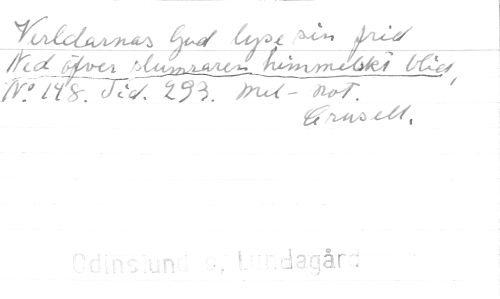 Verldarnas Gud lyse sin frid
Ned öfver slumraren himmelskt blid,
No 148. Sid. 293. Mel- not.
Crusell.
Odinslund o, Lundagård